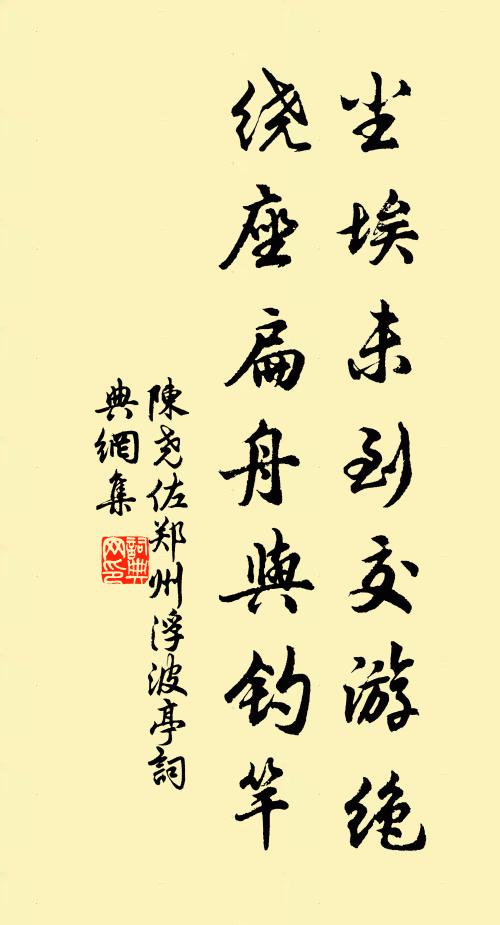 尘埃未到交游绝
绕座扁舟與钓竿
陳尧佐郑州浮波亭詞
典網集
詞典
网印